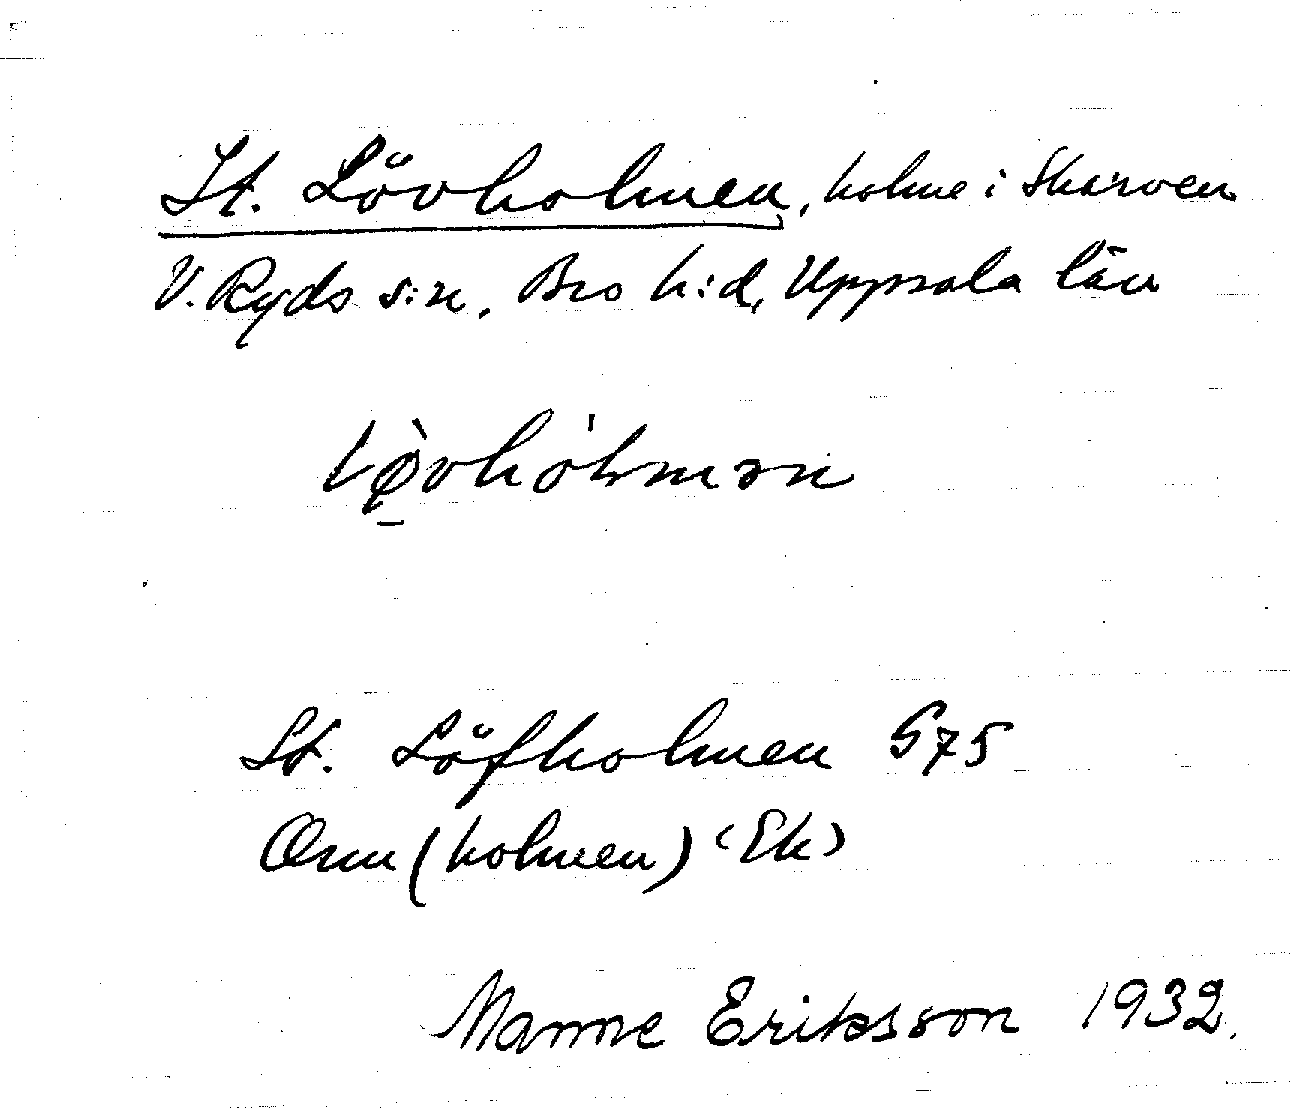 St. Lövholmen, holme i Skarven
V. Ryds s:n, Bro h:d, Uppsala län
lø̀vhólmən
St. Löfholmen G75
Orm (holmen) (Ek)
Manne Eriksson 1932.